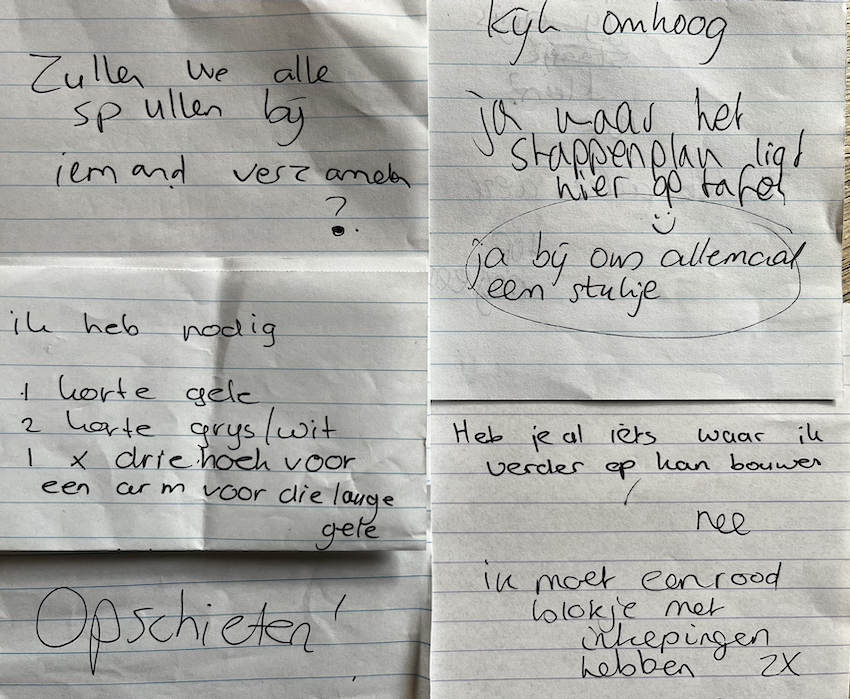 Zullen we alle
spullen bij
iemand verzamelen
?
ik heb nodig
1 korte gele
2 korte grijs/wit
1 x driehoek voor
een arm voor die lange
gele
Opschieten!
kijk omhoog
ja waar het
stappenplan ligt
hier op tafel
ja bij ons allemaal
een stukje
Heb je al iets waar ik
verder op kan bouwen
nee
ik moet een rood
blokje met
inkepingen
hebben 2X